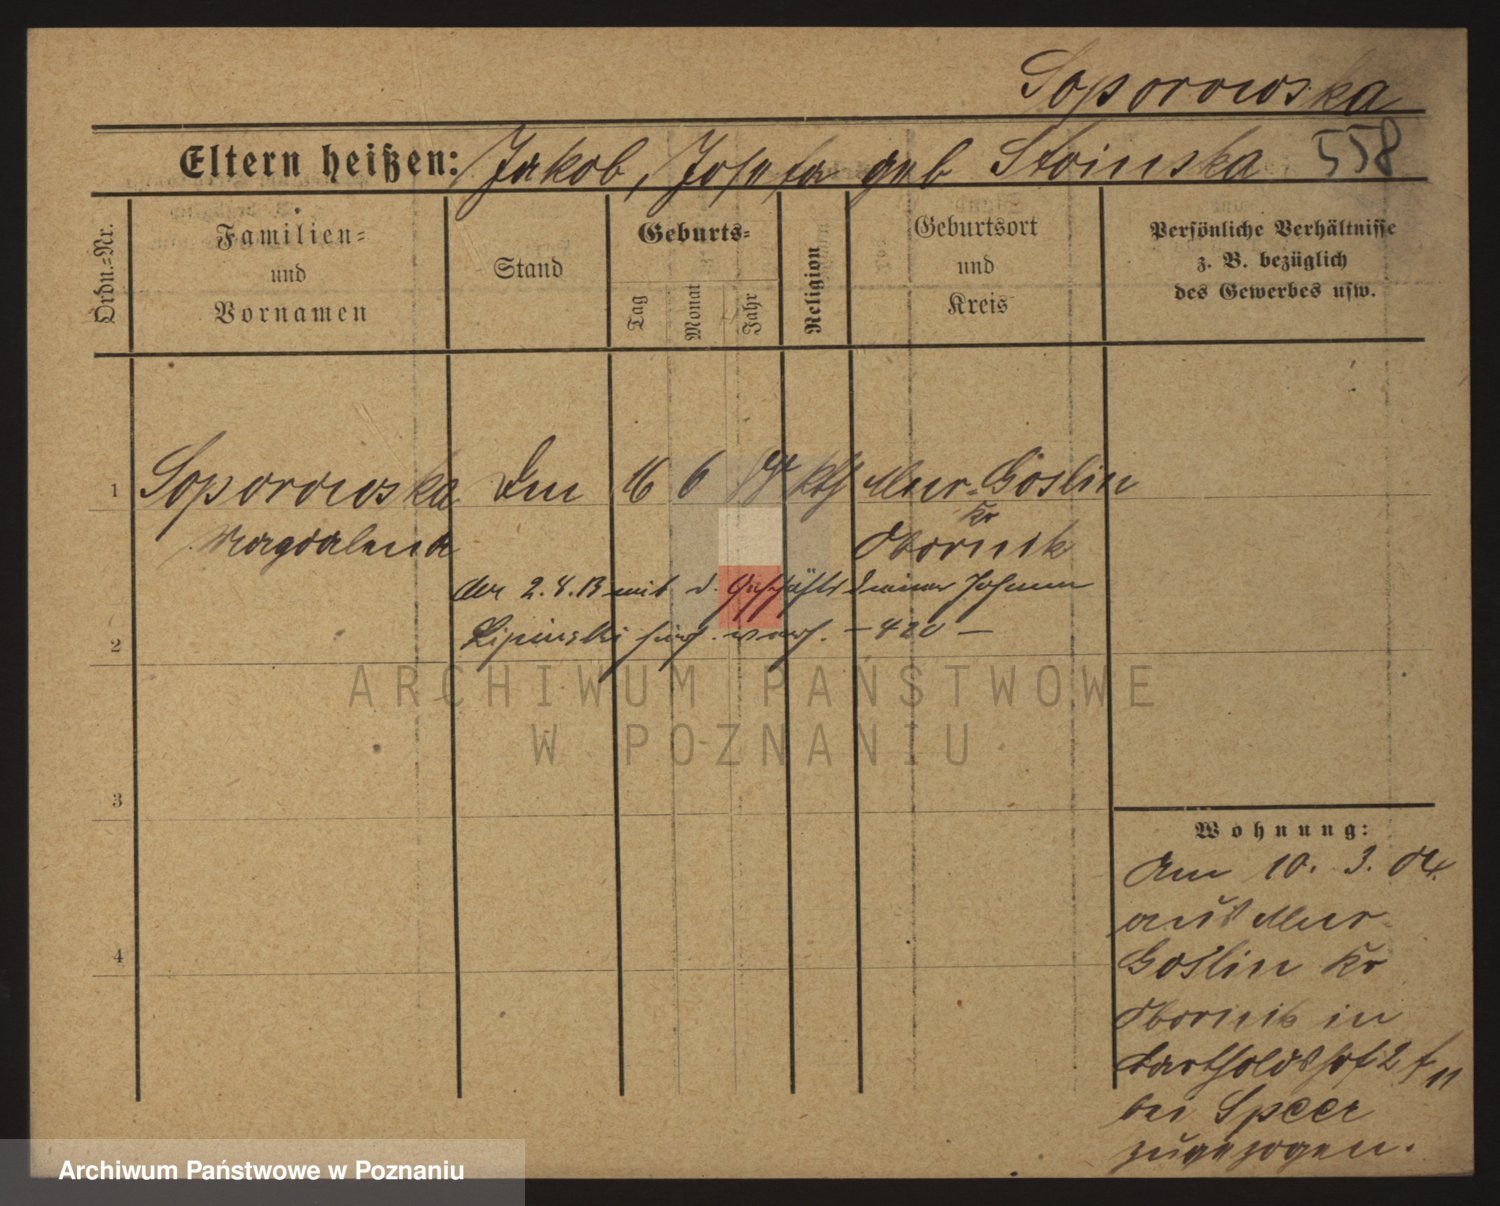 Soporowska
Eltern heißen: Jakob, Josefa geb Stoinska 558
Ordn.=Nr.
Familien=
und
Vornamen
Stand
Geburts=
Tag
Monat
Jahr
Religion
Geburtsort
und
Kreis
Persönliche Verhältnisse
z. B. bezüglich
des Gewerbes usw.
1 Soporowska 16 6 kth Mur. Goslin
Kr
Magdalena Obornik
2.4.13 mit d. Johann
2 Lipinski - 420 -
3
4
Wohnung:
Am 10. 3. 04.
aus Mur.
Goslin Kr
Obornik in
Bartholdshof 2
bei Speer
zugezogen.
ARCHIWUM PAŃSTWOWE
W POZNANIU
Archiwum Państwowe w Poznaniu